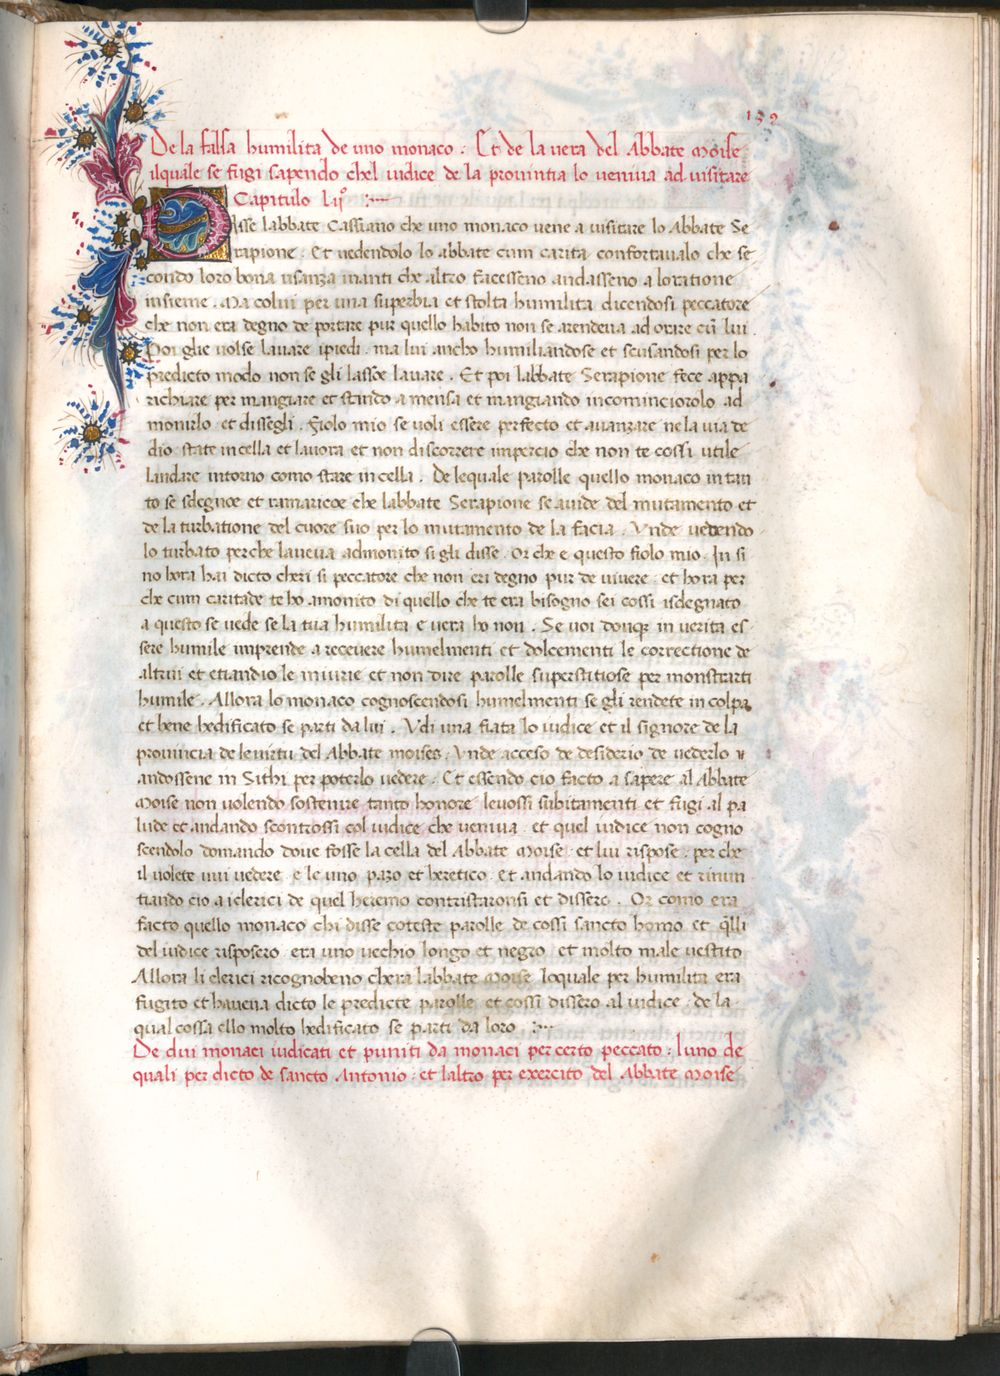 132
De la falsa humilita de uno monaco . Et de la vera del Abbate Moise
ilquale se fugi sapendo chel iudice de la provintia lo veniva ad visitare
Capitulo Lij°
Disse labbate Cassiano che uno monaco vene a visitare lo Abbate Se
rapione . Et vedendolo lo abbate cum carita confortavalo che se
condo loro bona usanza inanti che altro facesseno andasseno a loratione
insieme . Ma colui per una superbia et stolta humilita dicendosi peccatore
che non era degno de portare pur quello habito non se arendeva ad orare cũ lui .
Poi glie volse lavare ipiedi . ma lui ancho humiliandose et scusandosi per lo
predicto modo non se gli lassoe lavare . Et poi labbate Serapione fece appa
richiare per mangiare et stando a mensa et mangiando incominciorolo ad
monirlo et dissegli . Fiolo mio se voli essere perfecto et avanzare ne la via de
dio state in cella et lavora et non discorrere impercio che non te cossi utile
landare intorno como stare in cella . De lequale parolle quello monaco in tan
to se sdegnoe et ramaricoe che labbate Serapione se avide del mutamento et
de la turbatione del cuore suo per lo mutamento de la facia . Unde vedendo
lo turbato perche laueva admonito si gli disse . Or che e questo fiolo mio . In si
no hora hai dicto cheri si peccatore che non eri degno pur de vivere . et hora per
che cum caritade te ho amonito di quello che te era bisogno sei cossi isdegnato
a questo se vede se la tua humilita e vera ho non . Se voi donqz in verita es
sere humile imprende a recevere humelmenti et dolcementi le correctione de
altrui et etiandio le iniurie et non dire parolle superstitiose per monstrarti
humile . Allora lo monaco cognoscendosi humelmenti se gli rendete in colpa
et bene hedificato se parti da lui . Udi una fiata lo iudice et il signore de la
provincia de le virtu del Abbate moises . Unde acceso de desiderio de vederlo
andossene in Sithi per poterlo vedere . Et essendo cio facto a sapere al Abbate
Moise non volendo sostenire tanto honore levossi subitamenti et fugi al pa
lude et andando scontrossi col iudice che veniva . et quel iudice non cogno
scendolo domando dove fosse la cella del Abbate Moise . et lui rispose . per che
il volete vui vedere . e le uno pazo et heretico . Et andando lo iudice et rinun
tiando cio a iclerici de quel heremo contristaronsi et dissero . Or como era
facto quello monaco chi disse coteste parolle de cossi sancto homo . et q̃lli
del iudice risposero . era uno vechio longo et negro . et molto male vestito
Allora li clerici ricognobeno chera labbate Moise loquale per humilita era
fugito et haveva dicto le predicte parolle et cossi dissero al iudice . de la
qual cossa ello molto hedificato se parti da loro
De dui monaci iudicati et puniti da monaci per certo peccato : luno de
quali per dicto de sancto Antonio : et laltro per exercito del Abbate Moise